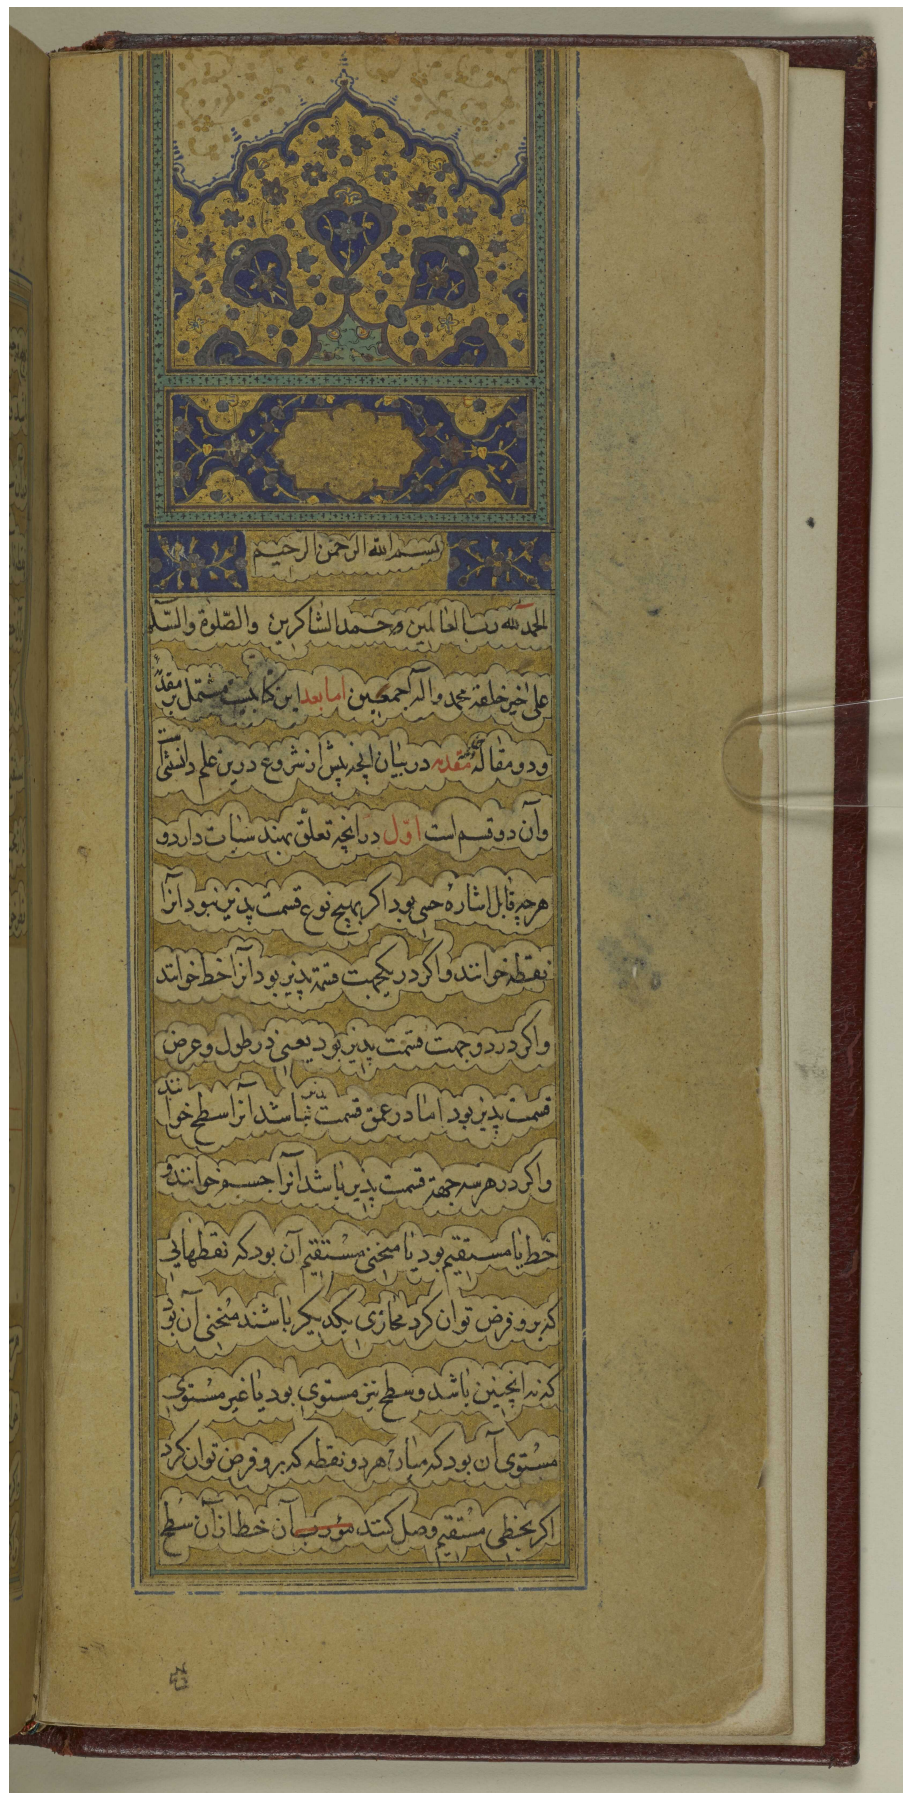 بسم الله الرحمن الرحیم
الحمد لله رب العالمین حمد الشاکرین والصّلوة والسّلم
علی خیر خلقه محمد واله اجمعین اما بعد این کتابیست مشتمل بر مقدمه
ودو مقاله مقدمه در بیان آنچه پیش از شروع درین علم دانستنیست
وآن دو قسم است اوّل در آنچه تعلّق بهندسیات دارد و
هرچه قابل اشارهٔ حسی بود اکر بهیچ نوع قسمت پذیر نبود آنرا
نقطه خوانند و اکر در یکجهت قسمة پذیر بود آنرا خط خوانند
واکر در دو جهت قسمت پذیر بود یعنی در طول و عرض
قسمت پذیر بود اما در عمق قسمت پذیر نباشد آنرا سطح خوانند
واکر در هر سه جهة قسمت پذیر باشد آنرا جسم خوانند و
خط یا مستقیم بود یا منحنی مستقیم آن بود که نقطهایی
که برو فرض توان کرد محاذی یکدیکر باشند منحنی آن بود
که نه انچنین باشد و سطح نیز مستوی بود یا غیر مستوی
مستوی آن بود که میان هر دو نقطه که برو فرض توان کرد
اکر بخطی مستقیم وصل کنند آن خط از آن سطح